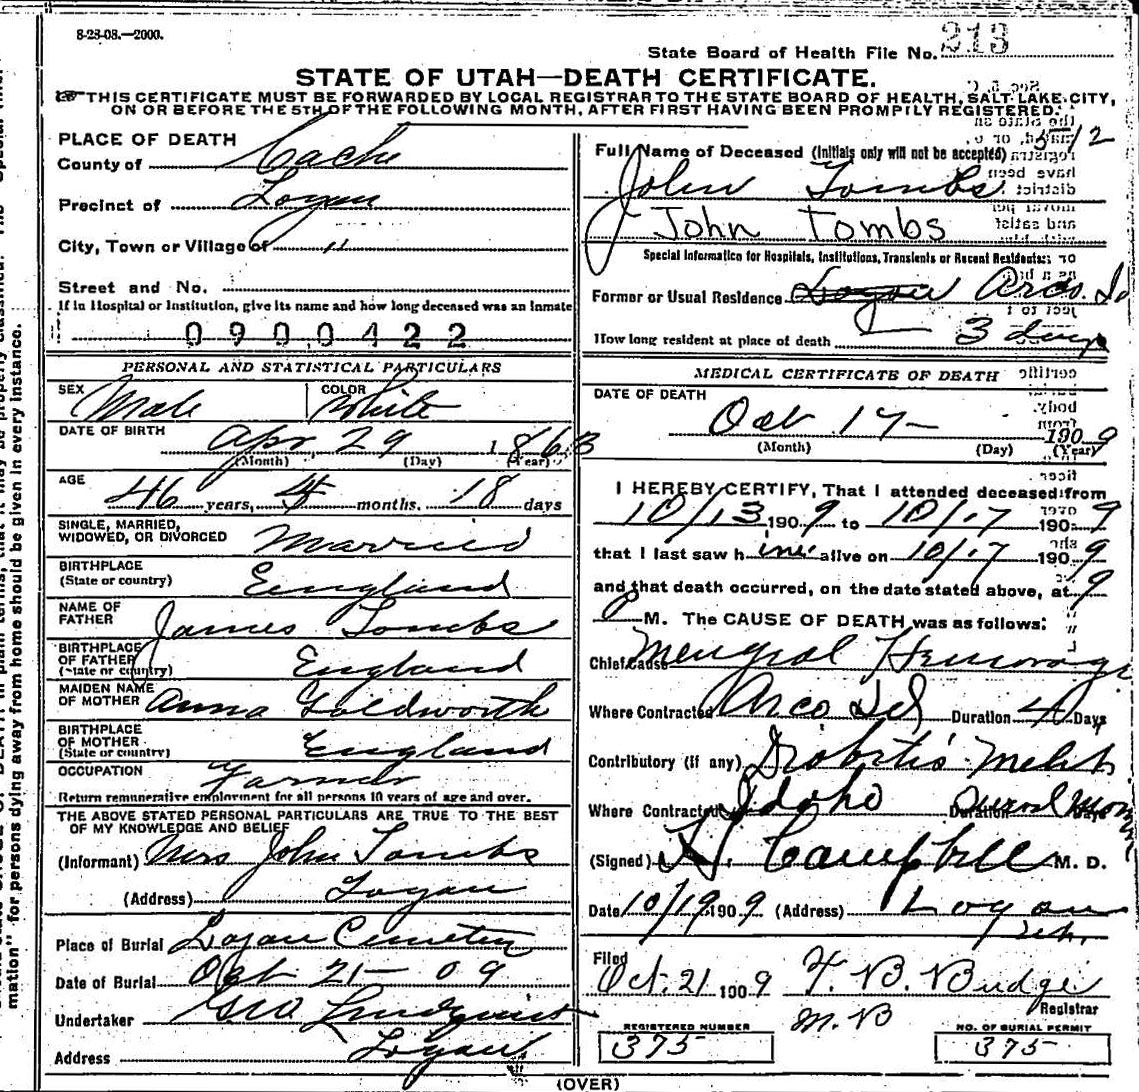 8-28-08.—2000.
State Board of Health File No. 213
STATE OF UTAH—DEATH CERTIFICATE.
THIS CERTIFICATE MUST BE FORWARDED BY LOCAL REGISTRAR TO THE STATE BOARD OF HEALTH, SALT LAKE CITY,
ON OR BEFORE THE 5TH OF THE FOLLOWING MONTH, AFTER FIRST HAVING BEEN PROMPTLY REGISTERED.
PLACE OF DEATH
County of Cache
Precinct of Logan
City, Town or Village of "
Street and No.
If in Hospital or Institution, give its name and how long deceased was an inmate
0900422
PERSONAL AND STATISTICAL PARTICULARS
SEX Male COLOR White
DATE OF BIRTH Apr 29 1863
(Month) (Day) (Year)
AGE 46 years, months, 18 days
SINGLE, MARRIED, WIDOWED, OR DIVORCED Married
BIRTHPLACE (State or country) England
NAME OF FATHER James Tombs
BIRTHPLACE OF FATHER (State or country) England
MAIDEN NAME OF MOTHER Anna Holdworth
BIRTHPLACE OF MOTHER (State or country) England
OCCUPATION Farmer
Return remunerative employment for all persons 10 years of age and over.
THE ABOVE STATED PERSONAL PARTICULARS ARE TRUE TO THE BEST
OF MY KNOWLEDGE AND BELIEF
(Informant) Mrs John Tombs
(Address) Logan
Place of Burial Logan Cemetery
Date of Burial Oct 21 - 09
Undertaker Geo Lindquist
Address Logan
512
Full Name of Deceased (Initials only will not be accepted)
John Tombs
John Tombs
Special Information for Hospitals, Institutions, Transients or Recent Residents:
Former or Usual Residence Logan Arco. Id
How long resident at place of death 3 days
MEDICAL CERTIFICATE OF DEATH
DATE OF DEATH
Oct 17 - 1909
(Month) (Day) (Year)
I HEREBY CERTIFY, That I attended deceased from
10/13 1909 to 10/17 1909
that I last saw him alive on 10/17 1909
and that death occurred, on the date stated above, at 9
P M. The CAUSE OF DEATH was as follows:
Chief Cause Hemorage
Where Contracted Arco Duration 4 Days
Contributory (if any)
Where Contracted Idaho Duration Days
(Signed) Campbell M. D.
Date 10/19 1909 (Address) Logan
Filed
Oct. 21 1909 Budge
Registrar
M.D
REGISTERED NUMBER
375
NO. OF BURIAL PERMIT
375
(OVER)
mation" for persons dying away from home should be given in every instance.